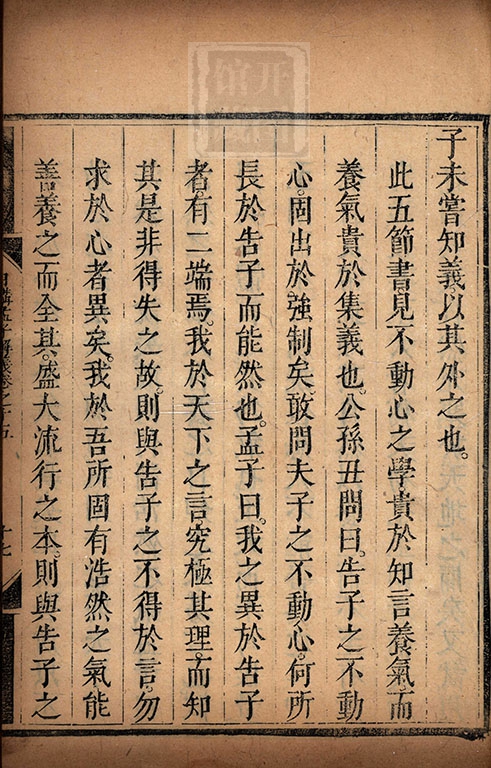 子未嘗知義以其外之也。
此五節書見不動心之學貴於知言養氣。而
養氣貴於集義也。公孫丑問曰。告子之不動
心。固出於強制矣。敢問夫子之不動心。何所
長於告子而能然也。孟子曰。我之異於告子
者。有二端焉。我於天下之言究極其理。而知
其是非得失之故。則與告子之不得於言。勿
求於心者異矣。我於吾所固有浩然之氣能
善養之而全其盛大流行之本。則與告子之
日講孟子解義卷之十五
十七